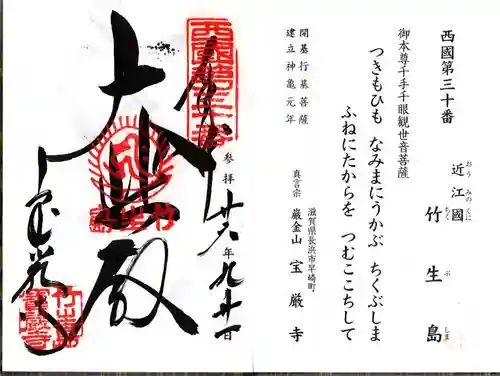 西國第三十番
近江國
おう みのくに
竹生島
ちく ぶ しま
御本尊千手千眼観世音菩薩
つきもひも なみまにうかぶ ちくぶしま
ふねにたからを つむここちして
開基行基菩薩
建立神亀元年
滋賀県長浜市早崎町
真言宗 巌金山 宝厳寺
奉
参拝 廿六年九月廿一日
大悲殿
宝厳寺